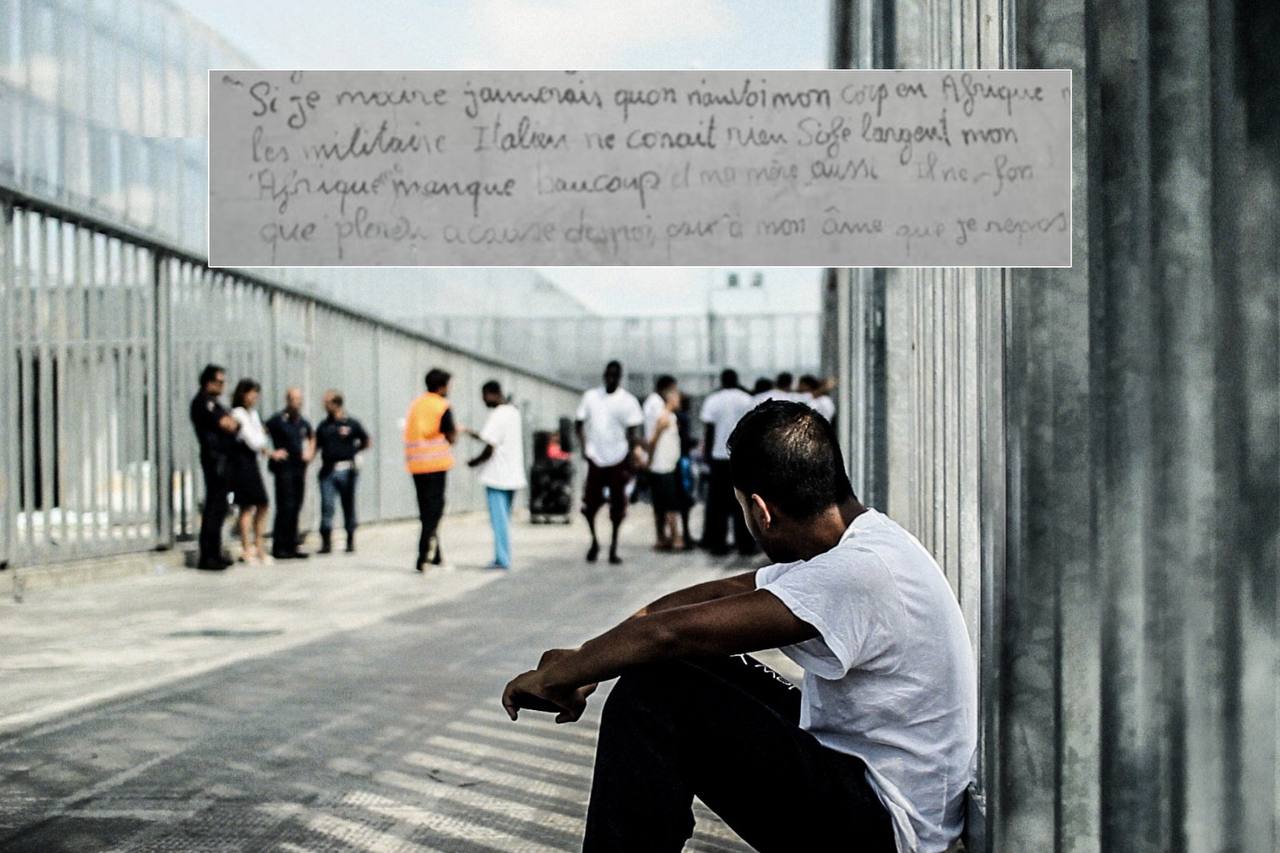 Si je moure jaimerais quon nanvoi mon corp en Afrique
les militaire Italien ne conait rien Sofé largent mon
Afrique manque baucoup et ma mère aussi il ne fon
que pleren a cause de moi, pour à mon âme que je repos